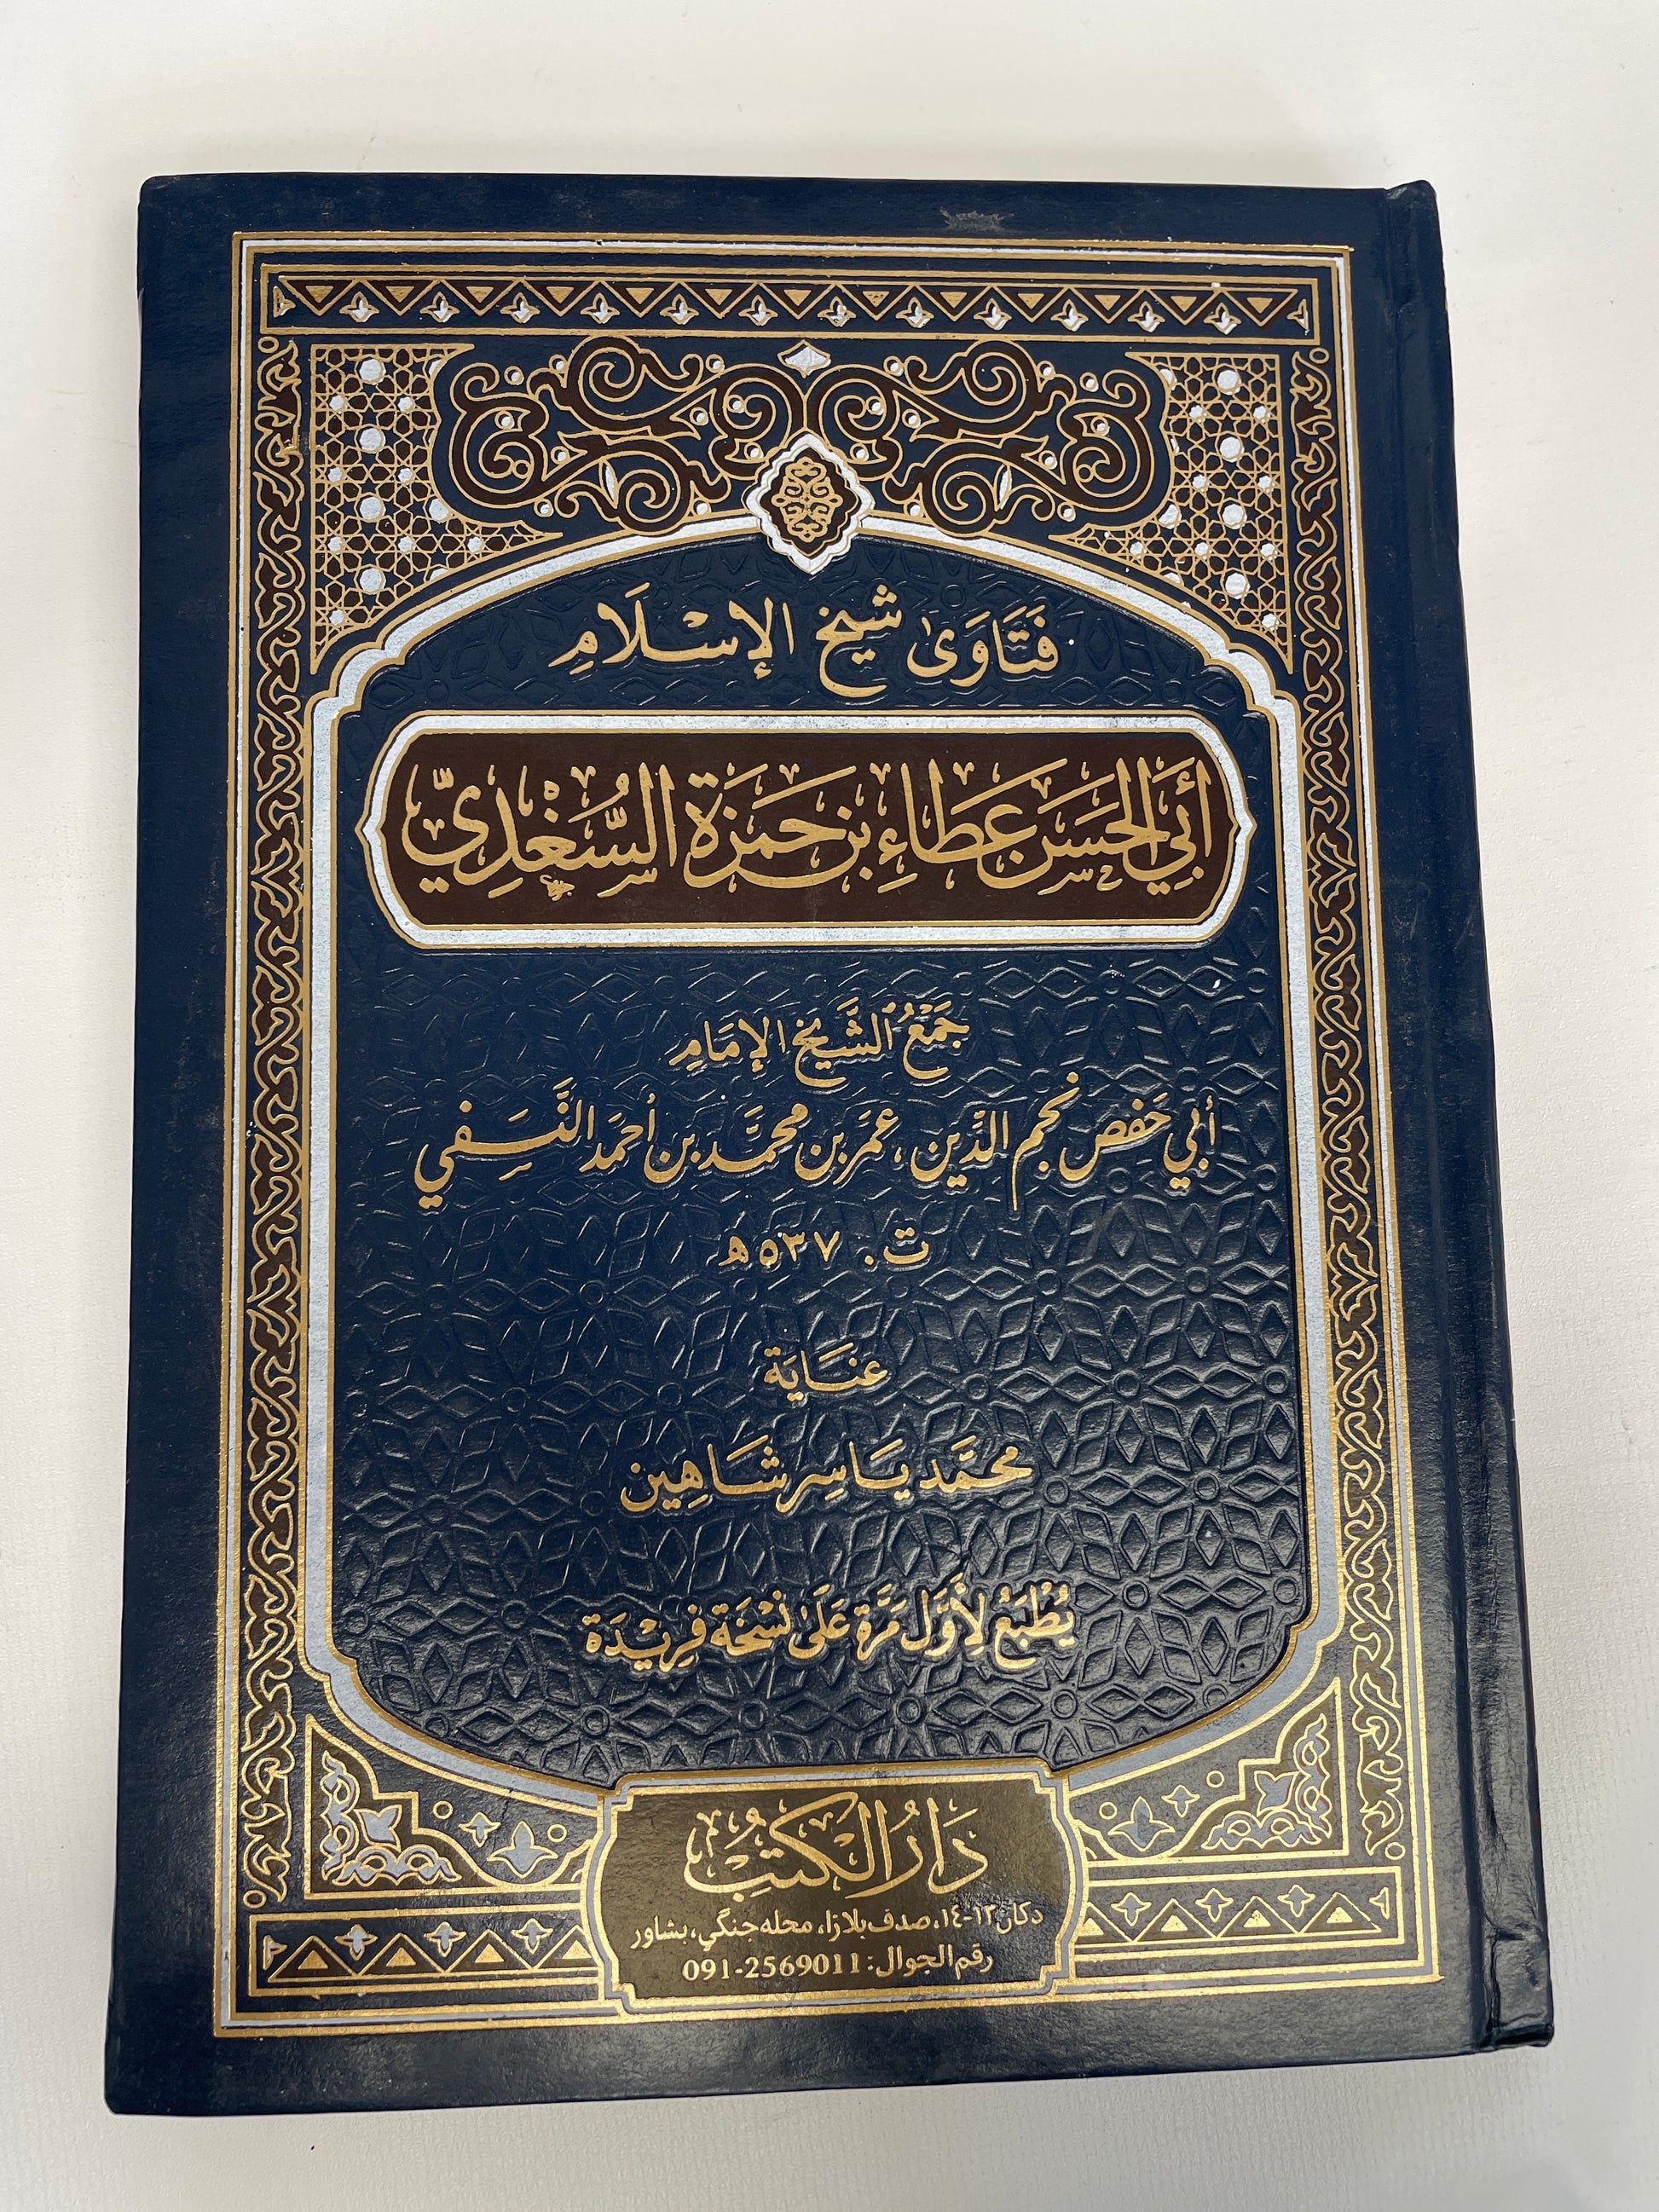 فَتَاوَىٰ شيخ الإِسْلَامِ
أَبِي الْحَسَن عَطَاءِ بن حَمَزَة السُّغْدِيّ
جَمْعُ الشَّيخ الإِمَامِ
أبي حَفص نجم الدِّين، عمَر بن محمَّد بن أحمَد النَّسَفي
ت. ٥٣٧ھ
عنَايَة
محمَّد يَاسِر شَاهِين
يُطْبَعُ لأَوَّل مَرَّة عَلَىٰ نُسْخَة فِريْدَة
دَارُ الْكتُبْ
دكان ١٣-١٤، صدف بلازا، محله جنگي، بشاور
رقم الجوال: 091-2569011